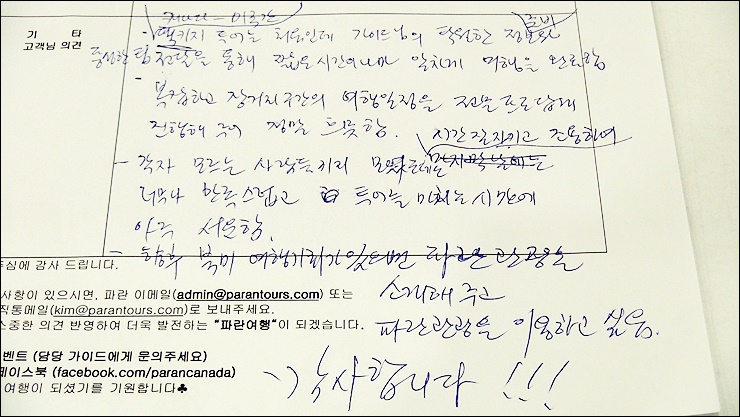 캐나다 - 미국간
기 타
고객님 의견
- 팩키지 투어는 처음인데 가이드님의 탁월한 정보와 준비
충실한 팁 전달을 통해 짧은 시간이나마 알차게 여행을 완료함
- 복잡하고 장거리 구간의 여행일정을 전문 프로답게
진행해 주어 정말 흐뭇함.
시간 잘 지키고 조용하여
- 각자 모르는 사람들끼리 모였는데도
너무나 만족스럽고 투어를 마치는 시간에
아주 서운함.
- 향후 북미 여행기회가 있으면 파란관광을
주심에 감사 드립니다.
소개해 주고
사항이 있으시면, 파란 이메일(admin@parantours.com) 또는
직통메일(kim@parantours.com)로 보내주세요.
소중한 의견 반영하여 더욱 발전하는 "파란여행"이 되겠습니다.
파란관광을 이용하고 싶음.
벤트 (담당 가이드에게 문의주세요)
페이스북 (facebook.com/parancanada)
여행이 되셨기를 기원합니다♣
감사합니다 !!!